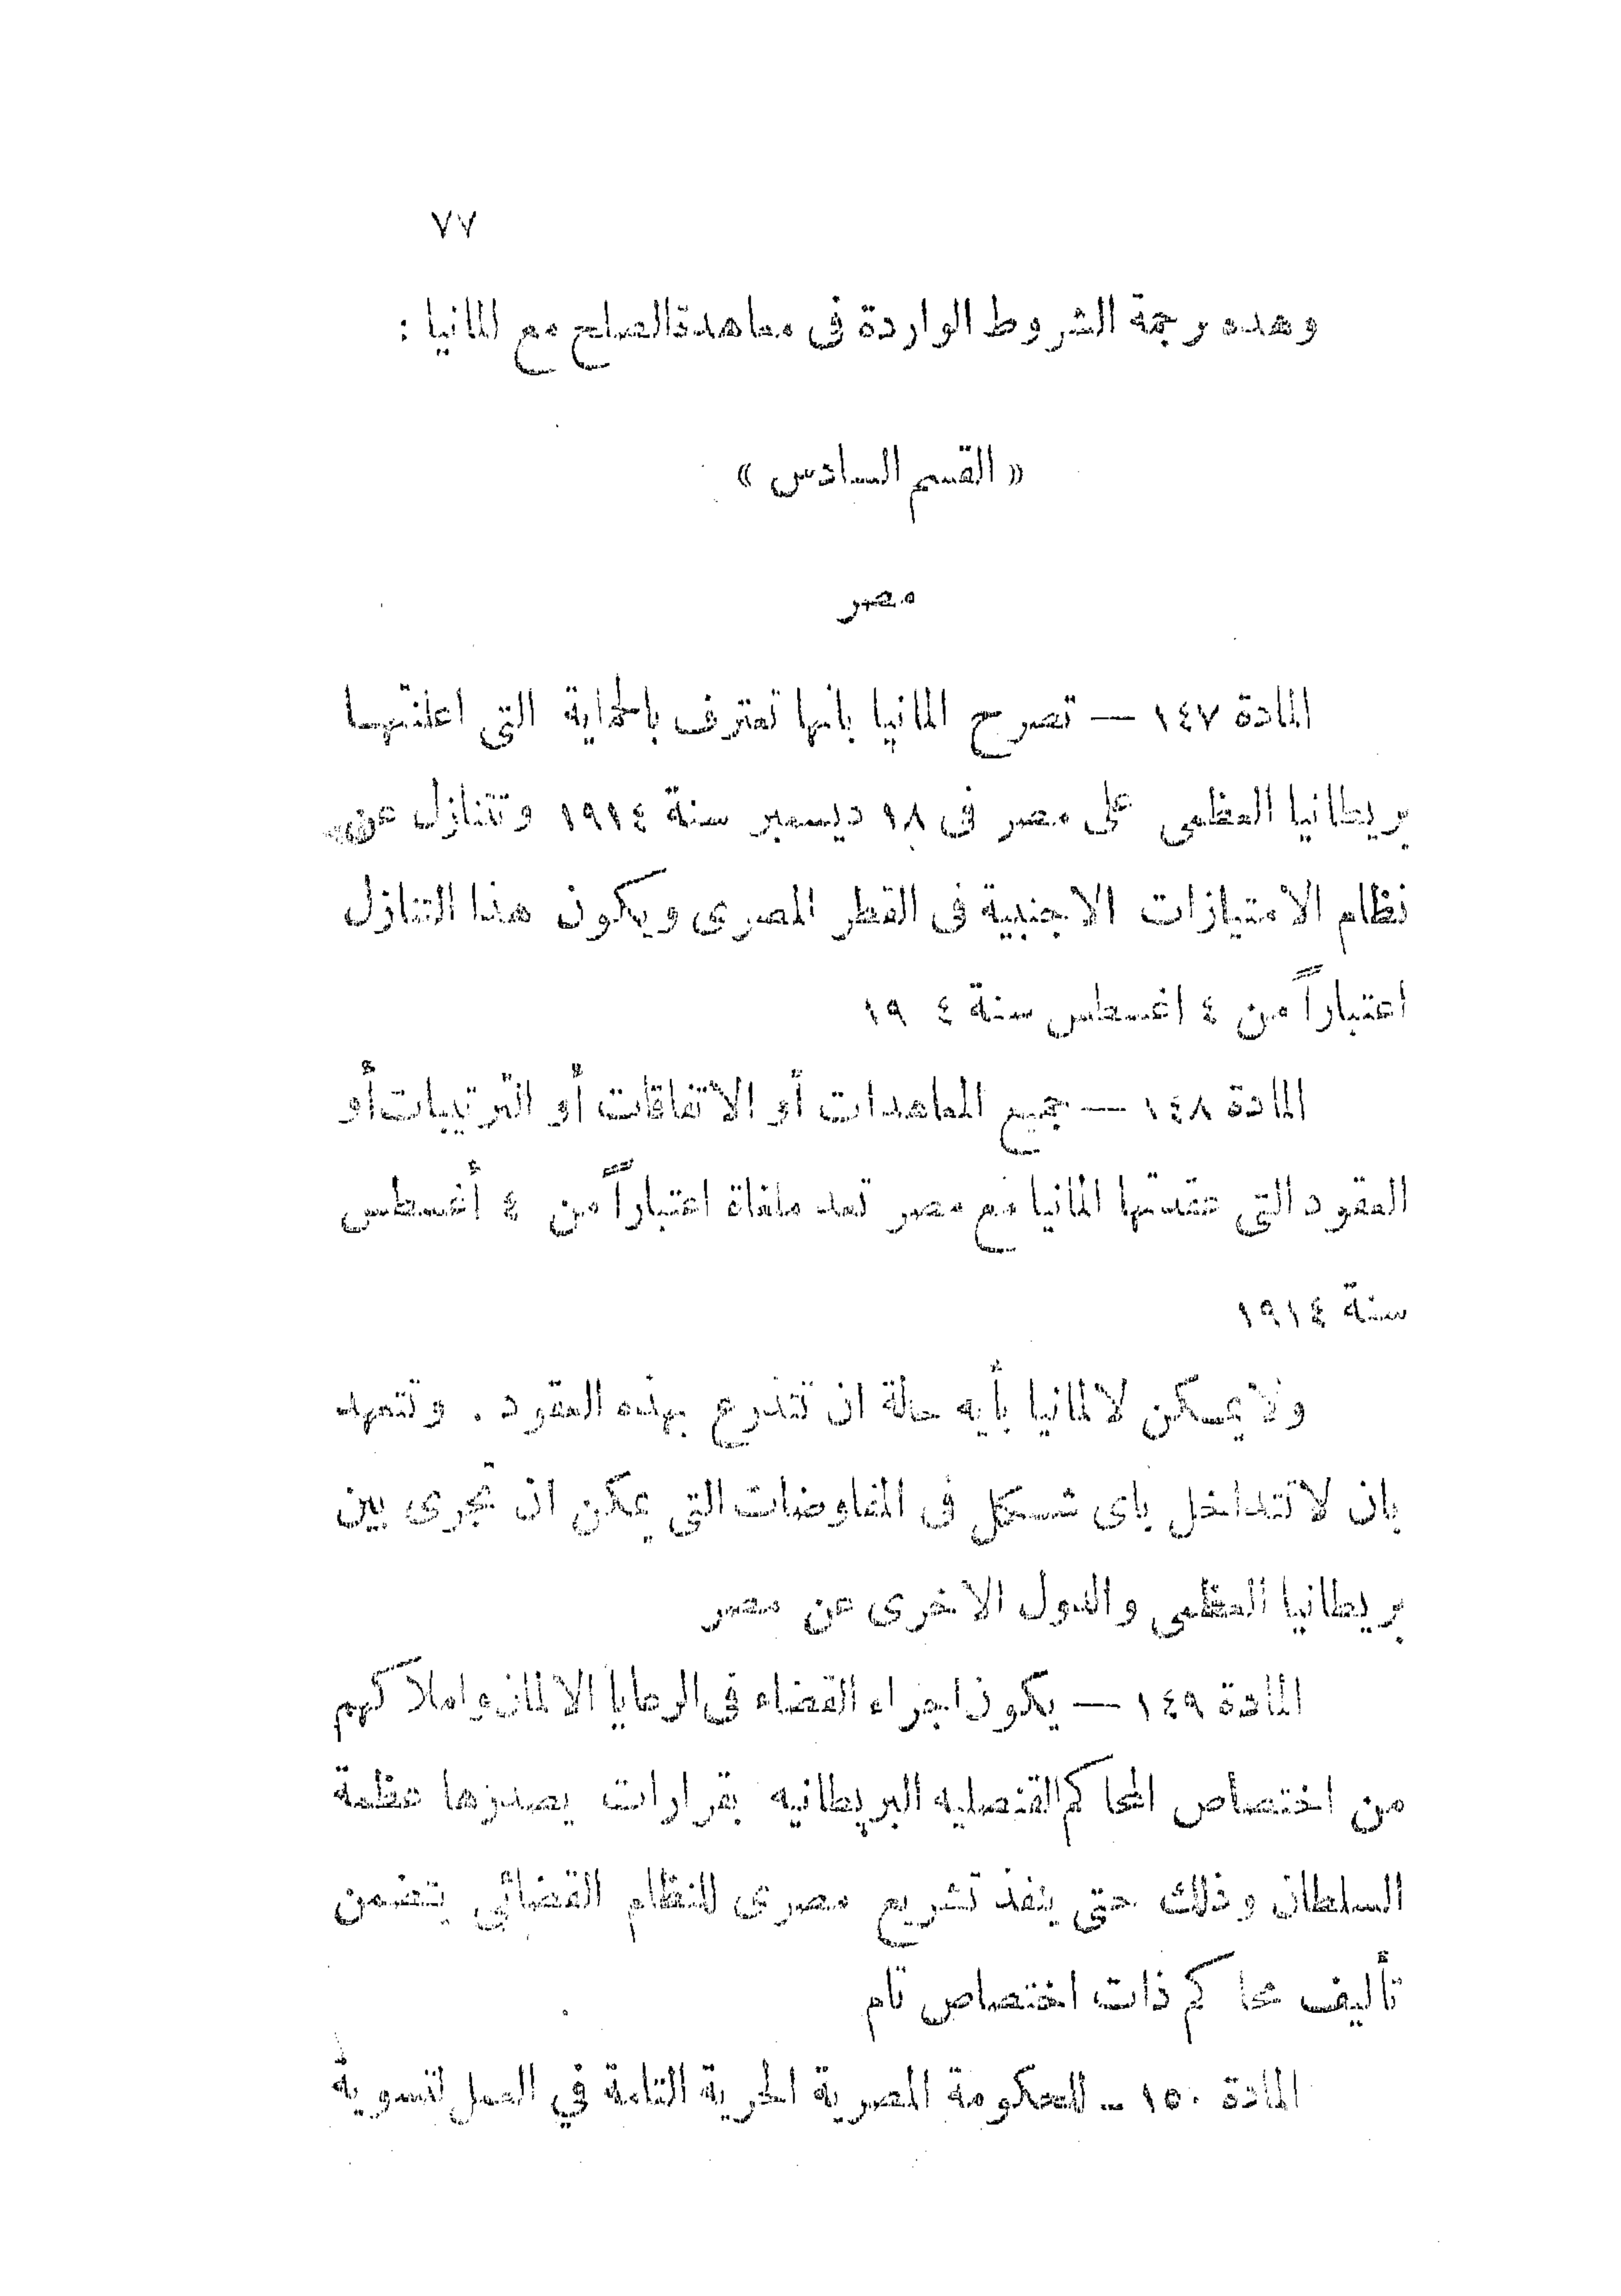 ٧٧
وهذه ترجمة الشروط الواردة فى معاهدة الصلح مع المانيا :
« القسم السادس »
مصر
المادة ١٤٧ — تصرح المانيا بانها تعترف بالحماية التى اعلنتهـا
بريطانيا العظمى على مصر فى ١٨ ديسمبر سنة ١٩١٤ وتتنازل عن
نظام الامتيازات الاجنبية فى القطر المصرى ويكون هذا التنازل
اعتباراً من ٤ اغسطس سنة ٤ ١٩
المادة ١٤٨ — جميع المعاهدات أو الاتفاقات أو الترتيبات أو
العقود التى عقدتها المانيا مع مصر تعد ملغاة اعتباراً من ٤ أغسطس
سنة ١٩١٤
ولا يمـكن لالمانيا بأيه حالة ان تتذرع بهذه العقود . وتتعهد
بان لا تتداخل باى شـكل فى المفاوضات التى يمكن ان تجرى بين
بريطانيا العظمى والدول الاخرى عن مصر
المادة ١٤٩ — يكون اجراء القضاء فى الرعايا الالمان واملاكهم
من اختصاص المحاكم القنصليه البريطانيه بقرارات يصدرها عظمة
السلطان وذلك حتى ينفذ تشريع مصرى للنظام القضائى يتضمن
تأليف محاكم ذات اختصاص تام
المادة ١٥٠ — للحكومة المصرية الحرية التامة في العمل لتسوية